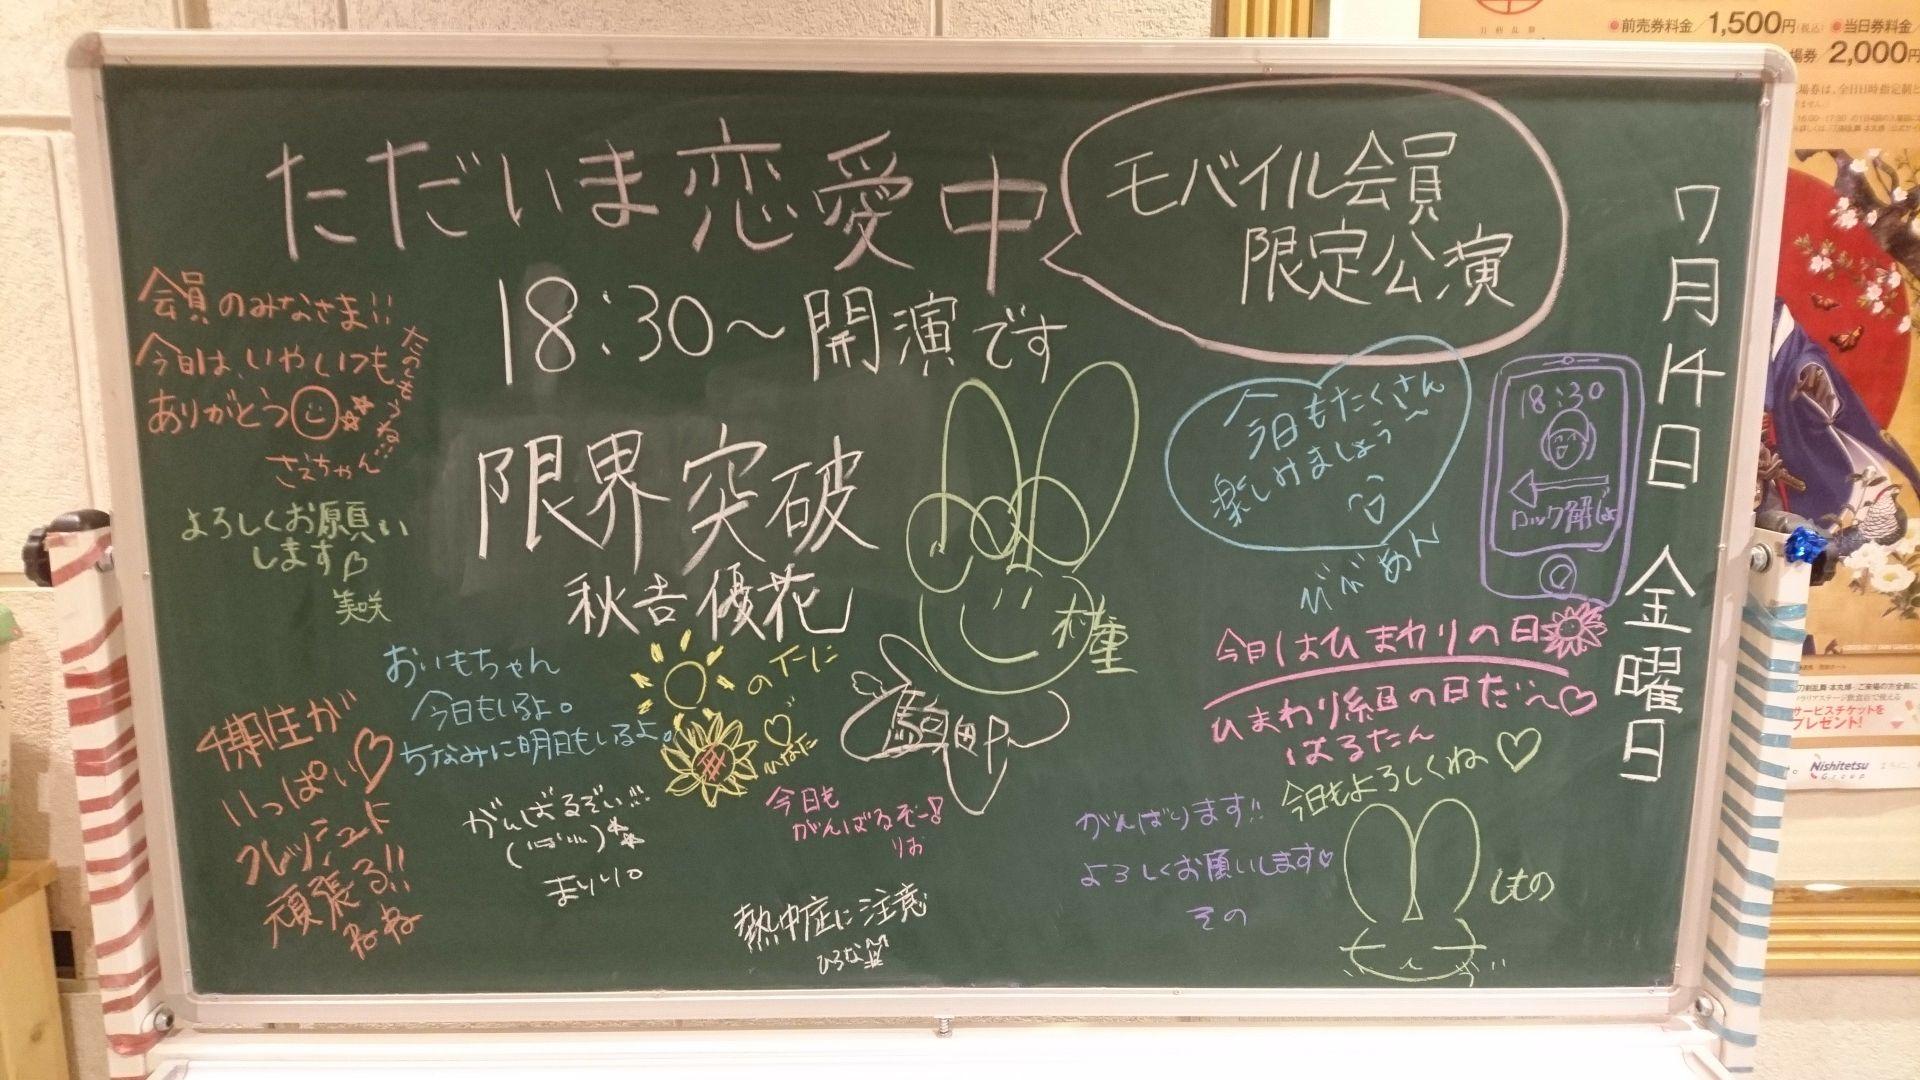 ただいま恋愛中
モバイル会員
限定公演
18:30〜開演です
7月14日 金曜日
会員のみなさま!!
今日は、いやいつも
ありがとう
さえちゃん
よろしくお願い
します
美咲
限界突破
秋吉優花
村重
今日もたくさん
楽しみましょう〜
びびあん
18:30
ロック解じょ
おいもちゃん
今日もいるよ。
ちなみに明日もいるよ。
の下に
ひなた
駒田
今日はひまわりの日
ひまわり組の日だ〜
はるたん
今日もよろしくね
しなの
4期生が
いっぱい
フレッシュに
頑張る!!
ねね
がんばるぞい!!!
まりりん
今日も
がんばるぞー!
りお
がんばります!!
よろしくお願いします
その
熱中症に注意
ひろな
前売券料金/1,500円(税込)
当日券料金/
2,000円
サービスチケットを
プレゼント!
Nishitetsu
Group